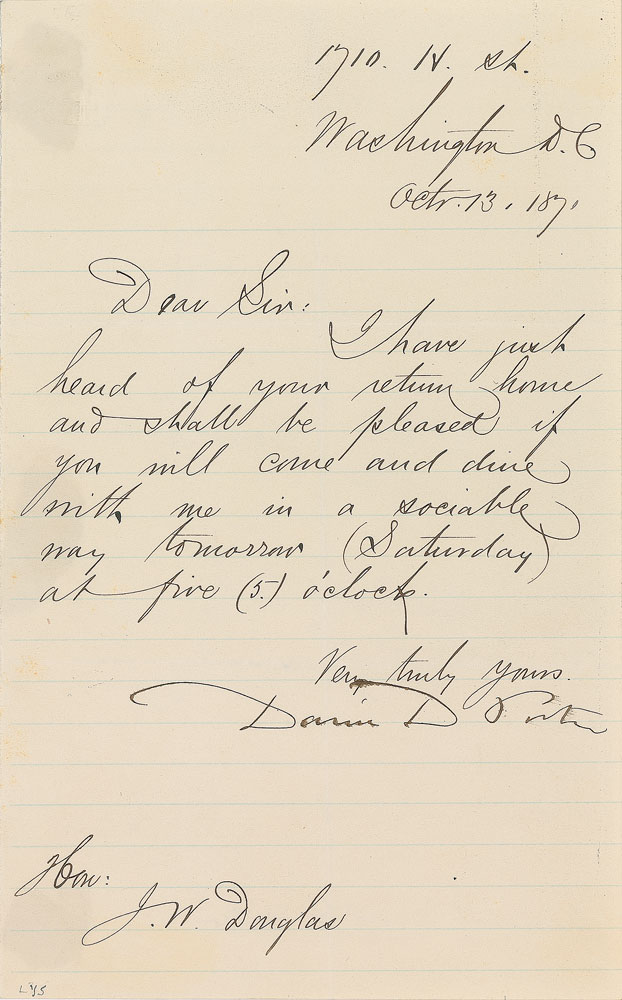 1710. H. st.
Washington D.C
Octr. 13. 1871
Dear Sir:
I have just
heard of your return home
and shall be pleased if
you will come and dine
with me in a sociable
way tomorrow (Saturday)
at five (5.) o'clock.
Very truly yours.
David D Porter
Hon:
J. W. Douglas